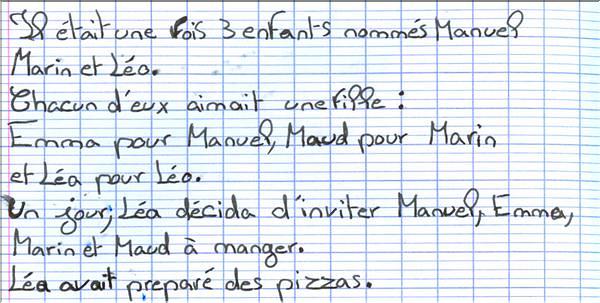 Il était une fois 3 enfants nommés Manuel
Marin et Léo.
Chacun d'eux aimait une fille :
Emma pour Manuel, Maud pour Marin
et Léa pour Léo.
Un jour, Léa décida d'inviter Manuel, Emma,
Marin et Maud à manger.
Léa avait preparé des pizzas.